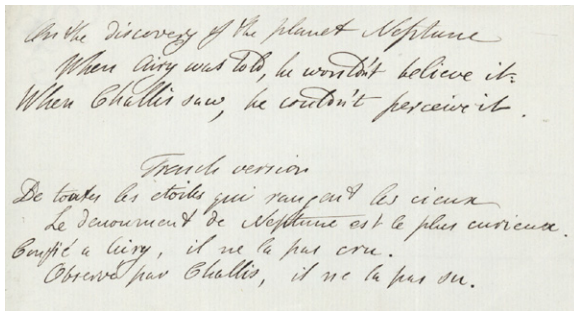 On the discovery of the planet Neptune
When Airy was told, he wouldn't believe it:
When Challis saw, he couldn't perceive it.
French version
De toutes les étoiles qui rangent les cieux
Le denoument de Neptune est le plus curieux.
Confié a Airy, il ne la pas cru.
Observé par Challis, il ne la pas su.